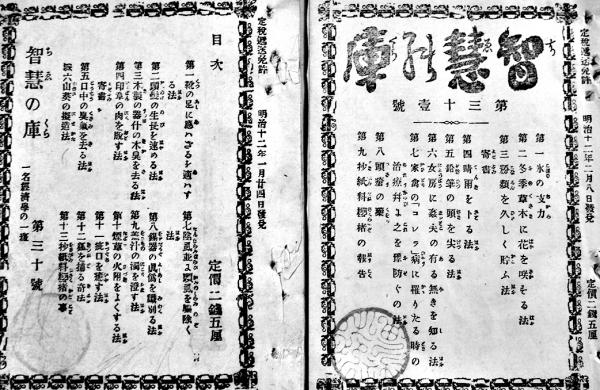 定税遞送免許
明治十二年二月八日發兌
定價二錢五厘
智慧の庫
第三十壹號
第一氷の支力
第二冬季草木に花を咲せる法
第三葯類を久しく貯ふ法
寄書
第四晴雨を卜る法
第五鉛筆の頭を尖る法
第六女房に姦夫の有る無きを知る法
第七家禽の「コレラ病に罹りたる時の
治療幷に之を預防ぐの法
第八頭の藥
第九抄紙料楮の報告
定税遞送免許
明治十二年一月廿四日發兌
定價二錢五厘
目次
第一靴の足に適はざるを適はす
る法
第二頭髮の生長を速める法
第三木製の器什の木臭を去る法
第四印章の肉を販す法
寄書
第五口中の臭氣を去る法
第六山葵の擬造法
第七陰虱並に頭虱を驅除く法
第八錫器の眞僞を鑑別る法
第九羔汁の濁を澄す法
第十煙草の火附をよくする法
第十一疵口を速す法
第十二狐を捕る奇法
第十三抄紙料楮の事
智慧の庫
一名經濟學の一班
第三十號